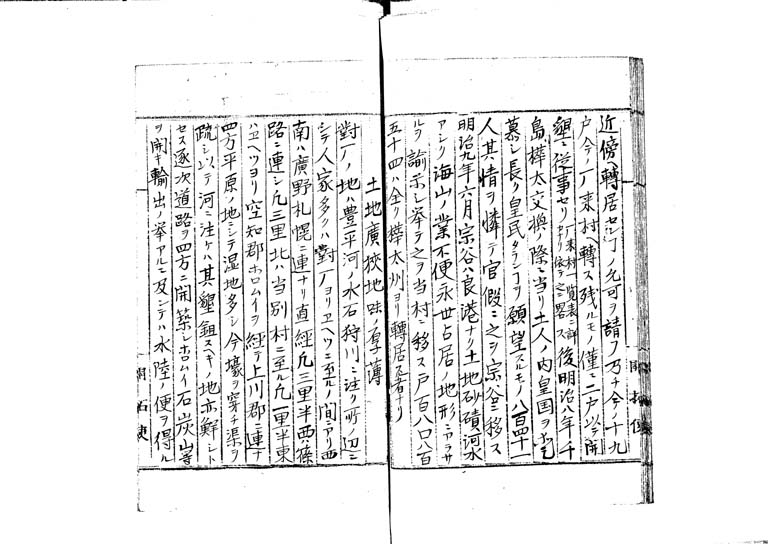 近傍ヘ轉居セン丁ノ允可ヲ請フ乃チ今ノ十九
戸今ノ厂来村ヘ轉ス残ルモノ僅ニ二戸以テ開
墾ニ従事セリ 後明治八年千
島樺太交換ノ際ニ当リ土人ノ内皇国ヲ
慕ヒ長ク皇民タラン丁ヲ願望スルモノ八百四十一
人其情ヲ憐テ官假ニ之ヲ宗谷ニ移ス
明治九年六月宗谷ハ良港ナリ土地砂磧河水
アシク海山ノ業不便永世占居ノ地形ニアラサ
ルヲ諭示シ挙テ之ヲ当村ニ移ス戸百八口八百
五十四ハ全ク樺太州ヨリ轉居ス者ナリ
土地廣狹地味ノ厚薄
對厂ノ地ハ豊平河ノ水石狩川ニ注ク所ノ辺ニ
シテ人家多クハ對厂ヨリヱヘツニ至ルノ間ニアリ西
南ハ廣野札幌ニ連ナリ直経凡三里半西ハ篠
路ニ連シ凡三里北ハ当別村ニ至ル凡一里半東
ハヱヘツヨリ空知郡ホロムイヲ経テ上川郡ニ連ナ
四方平原ノ地ニシテ湿地多シ今壕ヲ穿チ渠ヲ
疏シ以テ河ニ注ケハ其墾鉏スヘキノ地亦鮮シト
セス逐次道路ヲ四方ニ開築シホロムイ石炭山等
ヲ開キ輸出ノ挙アルニ及ンテハ水陸ノ便ヲ得ル
開拓使